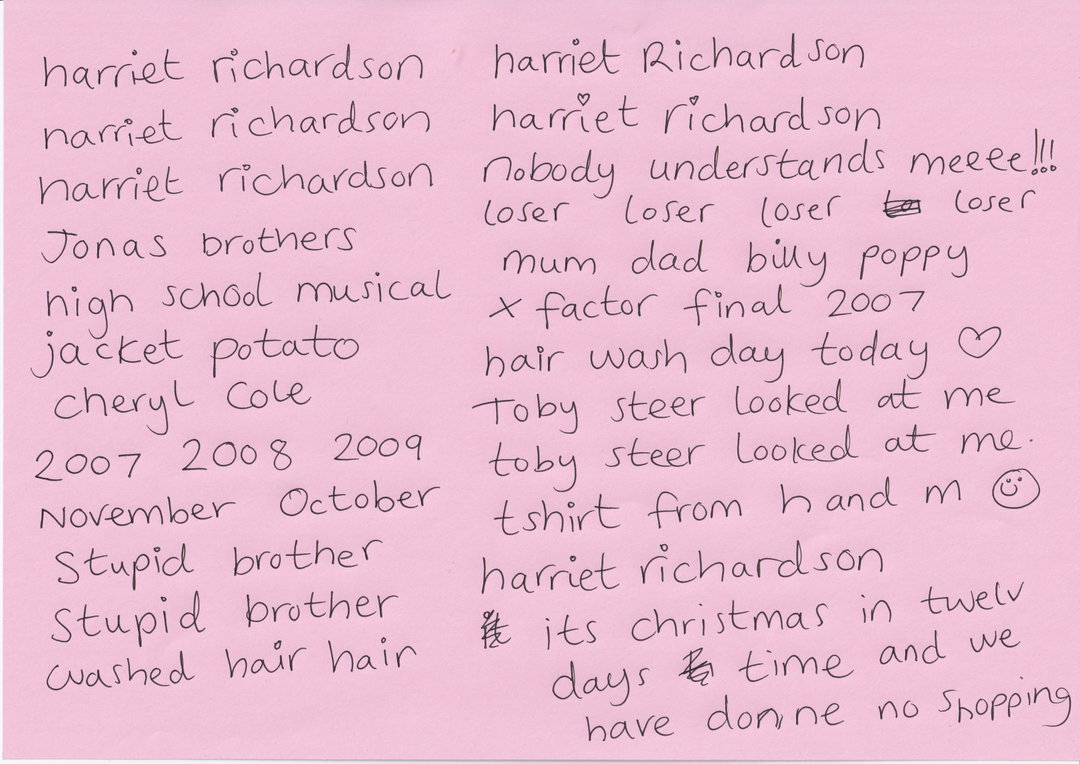 harriet richardson
harriet richardson
harriet richardson
Jonas brothers
high school musical
jacket potato
cheryl Cole
2007 2008 2009
November October
Stupid brother
Stupid brother
washed hair hair
harriet Richardson
harriet richardson
nobody understands meeee!!!
loser loser loser loser
mum dad billy poppy
x factor final 2007
hair wash day today ♡
Toby steer looked at me
toby steer looked at me.
tshirt from h and m ☺
harriet richardson
its christmas in twelv
days time and we
have donne no shopping